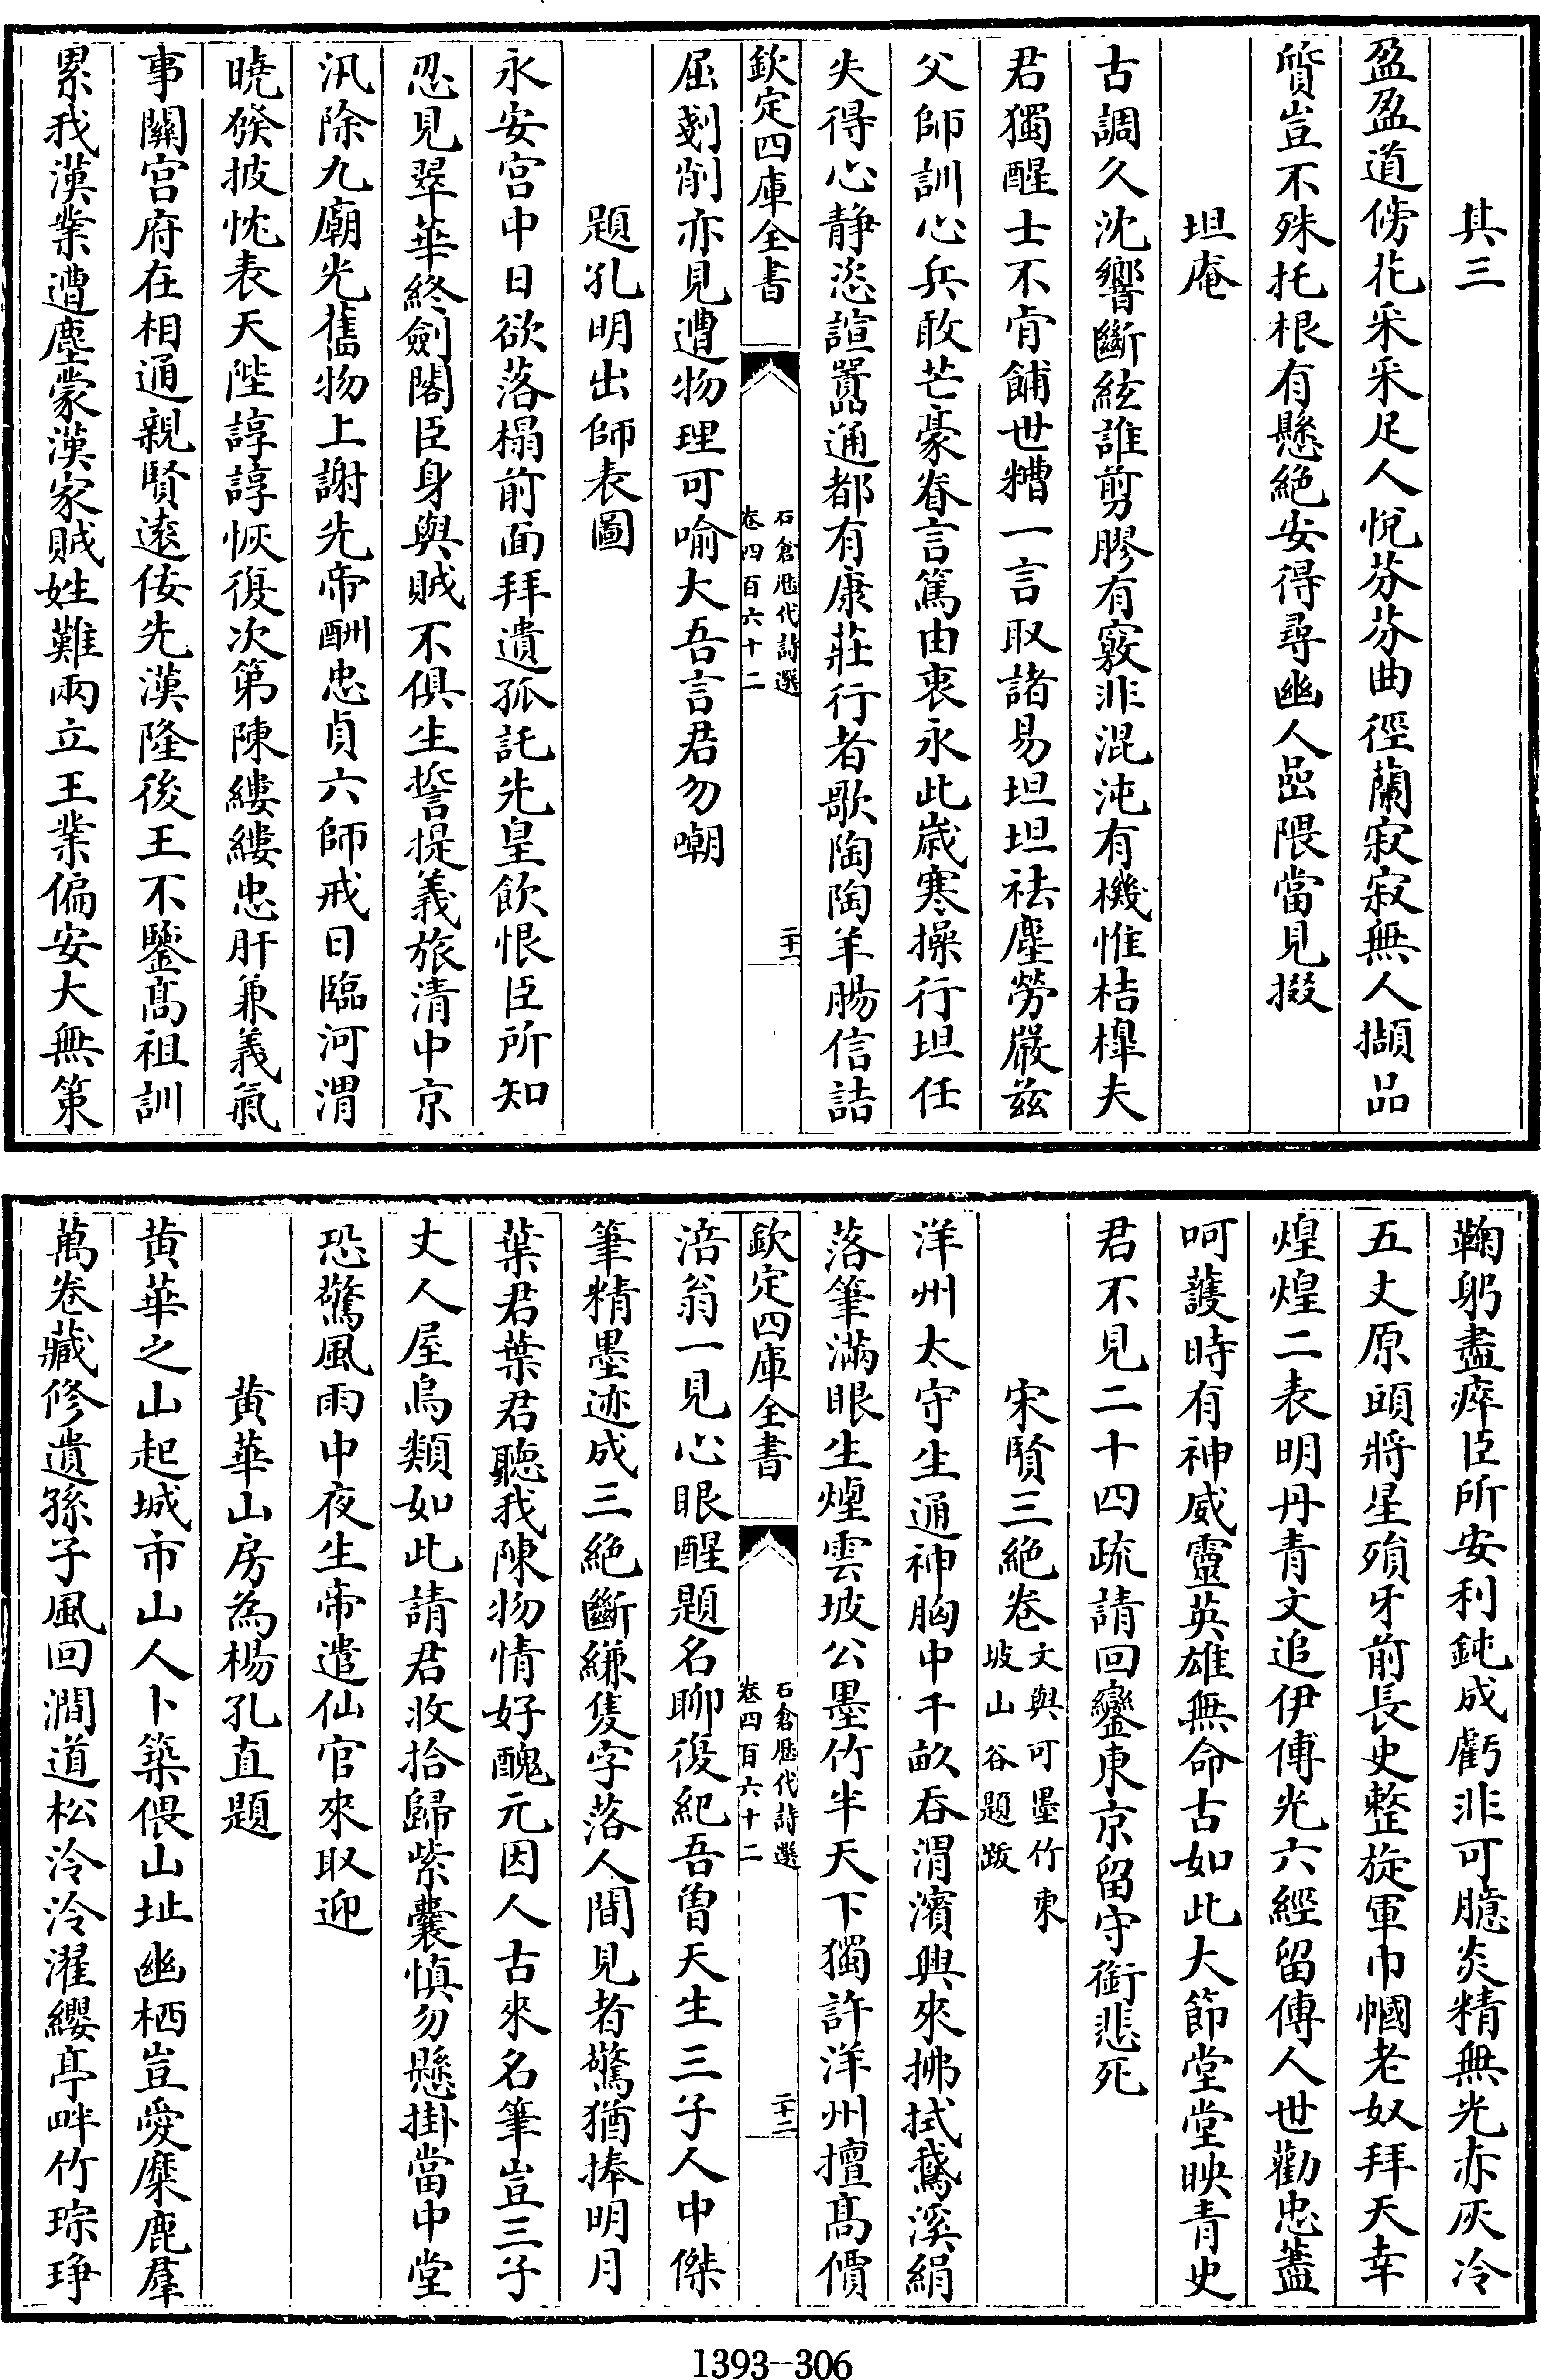 其三
盈盈道傍花采采足人悅芬芬曲徑蘭寂寂無人擷品
質豈不殊托根有懸絶安得尋幽人嵒隈當見掇
坦庵
古調久沈響斷絃誰剪膠有竅非混沌有機惟桔橰夫
君獨醒士不肯餔世糟一言取諸易坦坦袪塵勞嚴兹
父師訓心兵敢芒豪眷言篤由衷永此歲寒操行坦任
失得心静恣諠嚚通都有康莊行者歌陶陶羊腸信詰
欽定四庫全書
石倉歴代詩選
卷四百六十二
二十一
屈剗削亦見遭物理可喻大吾言君勿嘲
題孔明出師表圖
永安宫中日欲落榻前面拜遺孤託先皇飲恨臣所知
忍見翠華終劍閣臣身與賊不俱生誓提義旅清中京
汛除九廟光舊物上謝先帝酬忠貞六師戒日臨河渭
曉發披忱表天陛諄諄恢復次第陳縷縷忠肝兼義氣
事關宫府在相通親賢逺佞先漢隆後王不鑒髙祖訓
累我漢業遭塵蒙漢家賊姓難兩立王業偏安大無策
鞠躬盡瘁臣所安利鈍成虧非可臆炎精無光赤灰冷
五丈原頭將星殞牙前長史整旋軍巾幗老奴拜天幸
煌煌二表明丹青文追伊傅光六經留傳人世勸忠藎
呵護時有神威靈英雄無命古如此大節堂堂映青史
君不見二十四疏請回鑾東京留守銜悲死
宋賢三絶卷
文與可墨竹東
坡山谷題跋
洋州太守生通神胸中千畝吞渭濱興來拂拭鵞溪絹
落筆滿眼生煙雲坡公墨竹半天下獨許洋州擅髙價
欽定四庫全書
石倉歴代詩選
卷四百六十二
二十二
涪翁一見心眼醒題名聊復紀吾曽天生三子人中傑
筆精墨迹成三絶斷縑隻字落人間見者驚猶捧明月
葉君葉君聽我陳物情好醜元因人古來名筆豈三子
丈人屋烏類如此請君收拾歸紫囊慎勿懸掛當中堂
恐驚風雨中夜生帝遣仙官來取迎
黄華山房為楊孔直題
黄華之山起城市山人卜築偎山址幽栖豈愛麋鹿羣
萬卷藏修遺孫子風回澗道松泠泠濯纓亭畔竹琮琤
1393-306